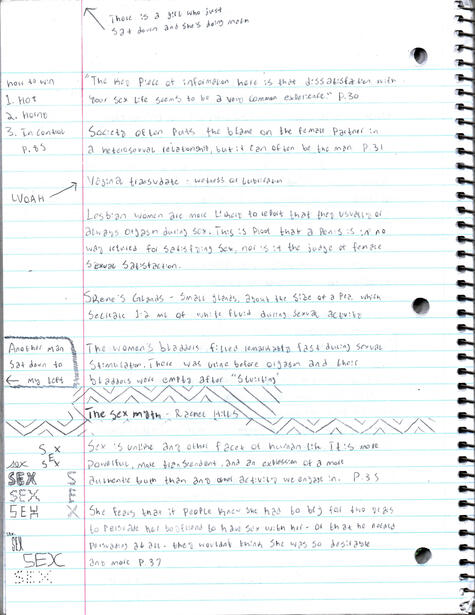 There is a girl who just
sat down and she's doing math
how to win
1. Hot
2. Horny
3. In control
p. 85
"The key piece of information here is that dissatisfaction with
your sex life seems to be a very common experience." p.30
Society often puts the blame on the female partner in
a heterosexual relationship, but it can often be the man p.31
Vaginal transudate - wetness or lubrication
WOAH
Lesbian women are more likely to report that they usually or
always orgasm during sex. This is proof that a penis is in no
way required for satisfying sex, nor is it the judge of female
sexual satisfaction.
Skene's Glands - Small glands, about the size of a pea, which
secrete 1-2 mL of white fluid during sexual activity
Another man
sat down to
← my left
The women's bladders filled remarkably fast during sexual
stimulation. There was urine before orgasm and their
bladders were empty after "squirting"
The sex myth - Rachel Hills
Sex is unlike any other facet of human life. It is more
powerful, more transcendent, and an expression of a more
authentic both than any other activity we engage in. p.35
She fears that if people knew she had to beg for two years
to persuade her boyfriend to have sex with her - or that he needed
persuading at all - they wouldn't think she was so desirable
any more p.37
SEX
sex
SEX
SEX
SEX
SEX
SEX
SEX
SEX
SEX